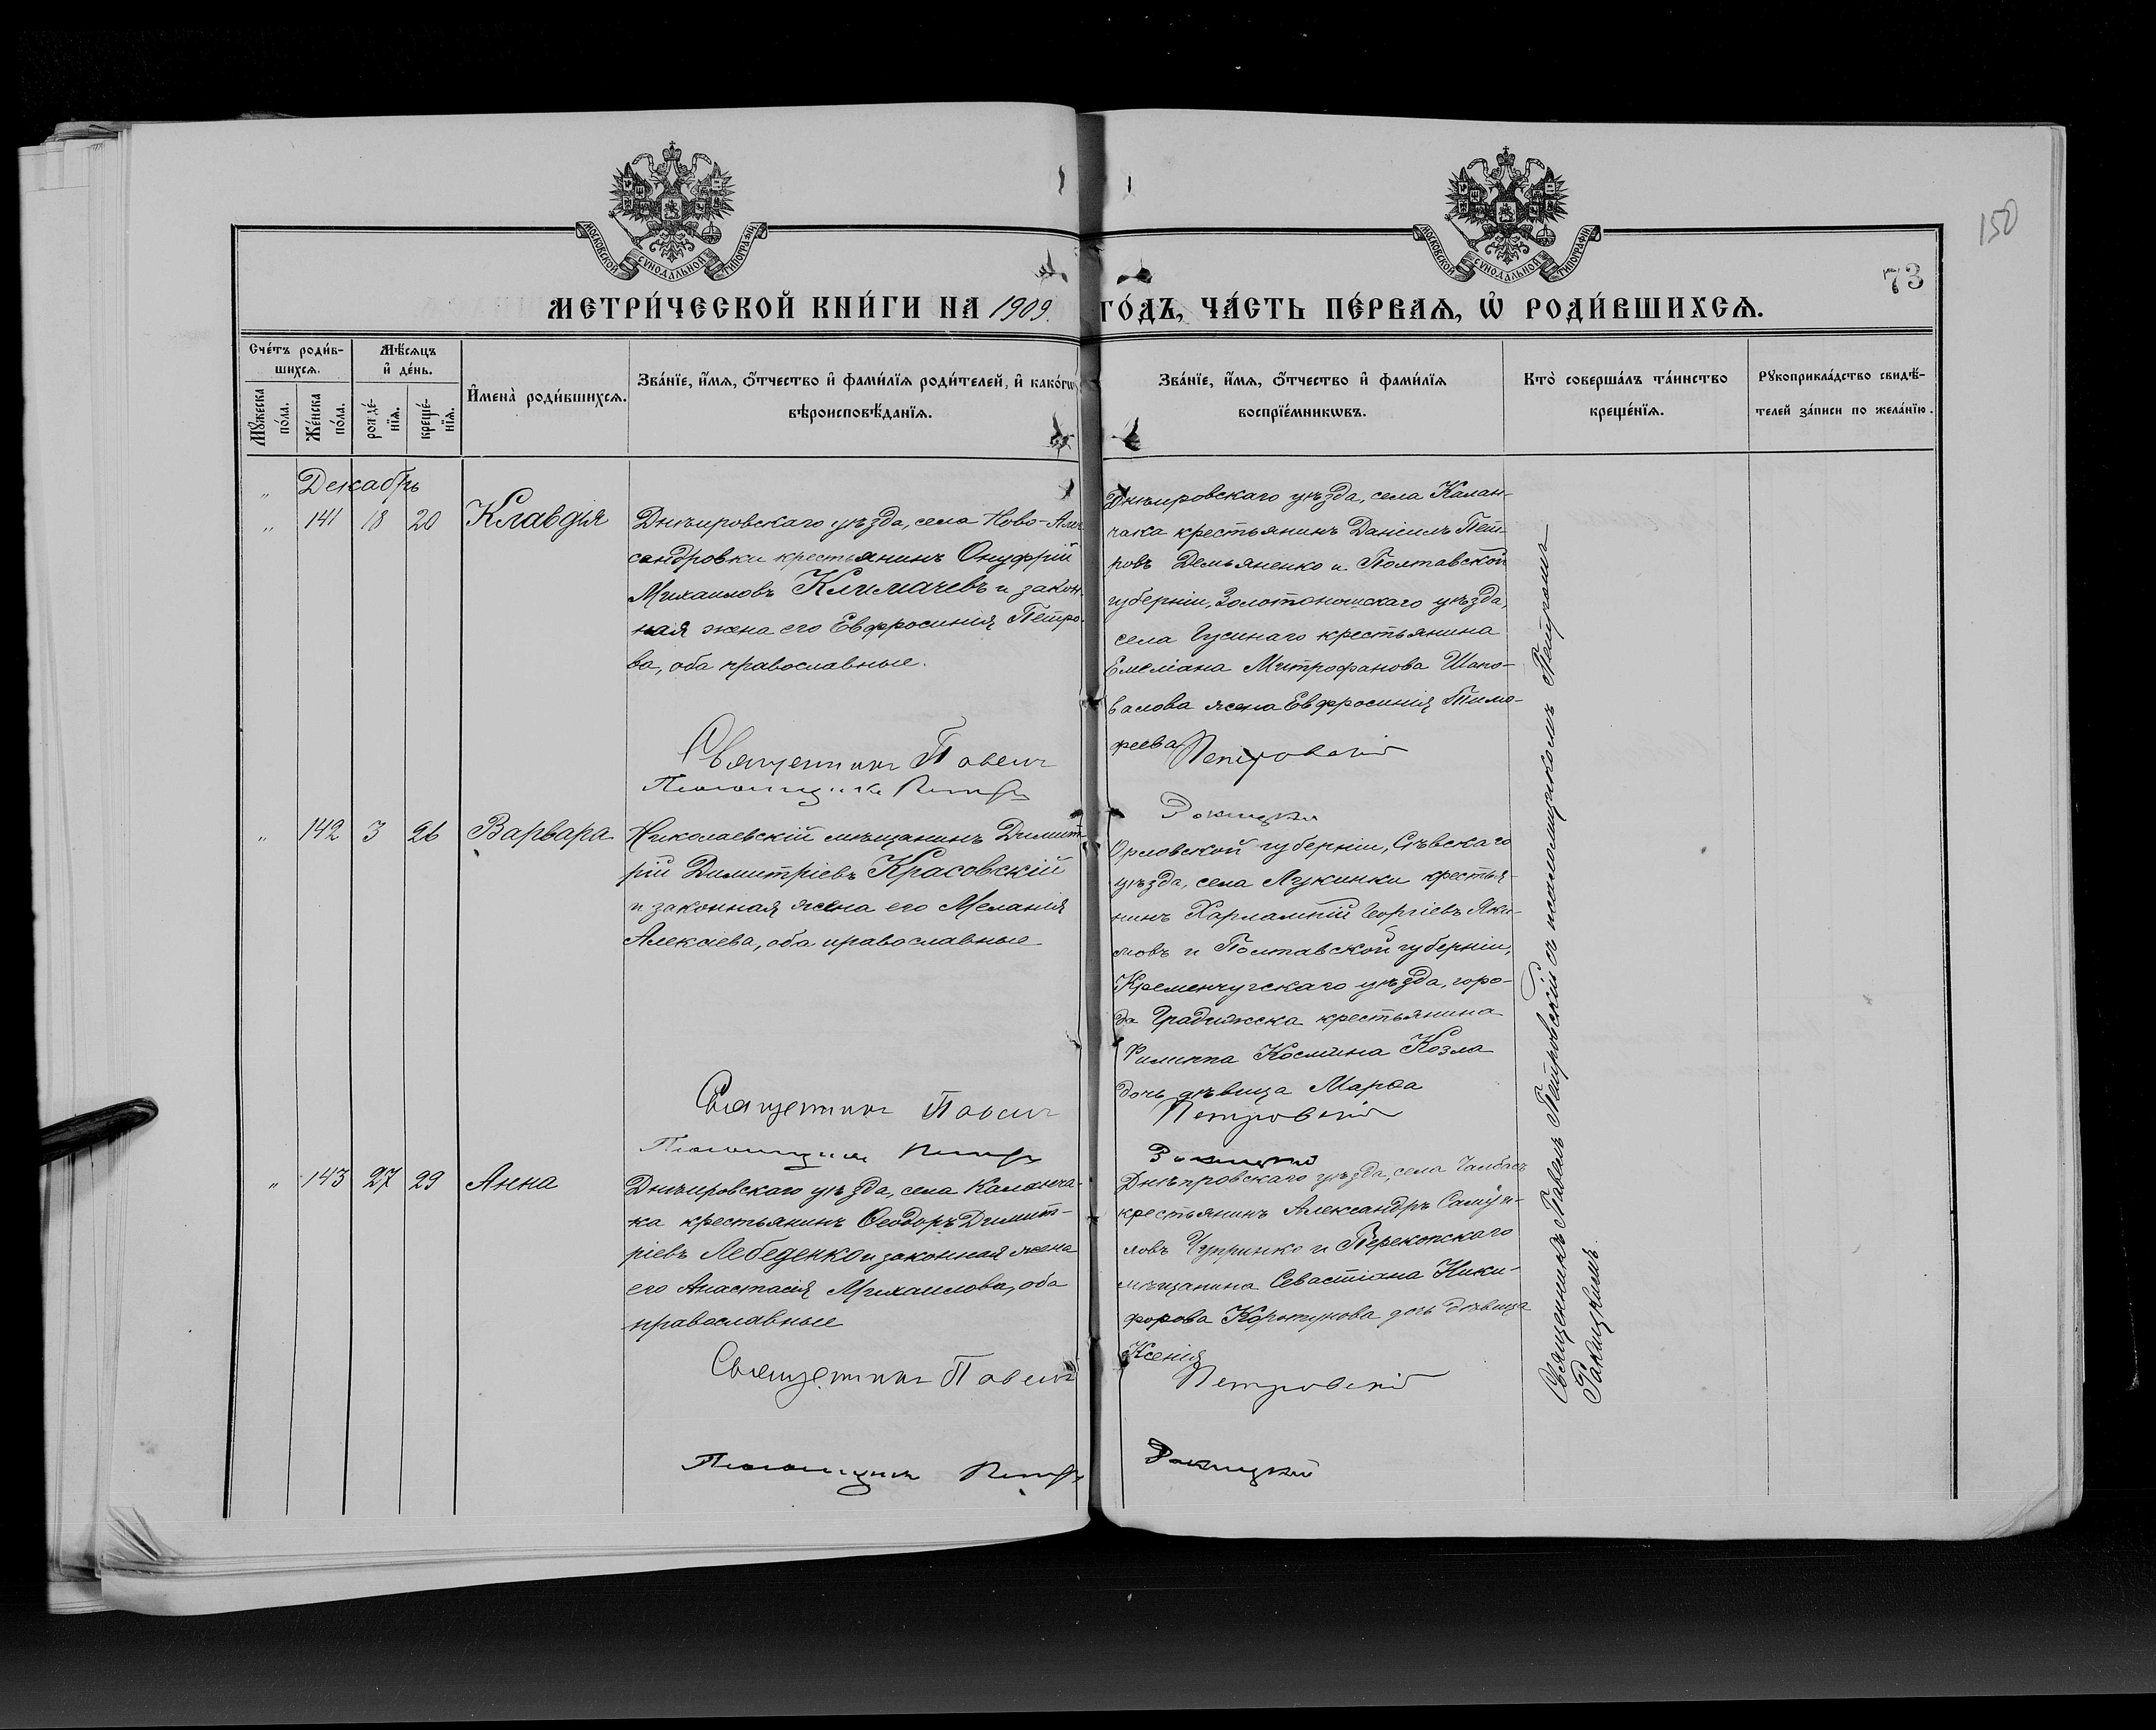 150
73
МОСКОВСКОЙ СѴНОДАЛЬНОЙ ТИПОГРАФІИ
МОСКОВСКОЙ СѴНОДАЛЬНОЙ ТИПОГРАФІИ
МЕТРИ́ЧЕСКОЙ КНИ́ГИ НА 1909. ГО́ДЪ, ЧА́СТЬ ПЕ́РВАѦ, Ѡ҆ РОДИ́ВШИХСѦ.
Сче́тъ роди́в-
шихсѧ.
Мꙋ́жеска по́ла.
Же́нска по́ла.
Мѣ́сѧцъ
и҆ де́нь.
рожде́-
нїѧ.
креще́-
нїѧ.
И҆мена̀ роди́вшихсѧ.
Зва́нїе, и҆́мѧ, ѻ҆́тчество и҆ фами́лїѧ роди́телей, и҆ како́гѡ
вѣроисповѣ́данїѧ.
Зва́нїе, и҆́мѧ, ѻ҆́тчество и҆ фами́лїѧ
воспрїе́мникѡвъ.
Кто̀ соверша́лъ та́инство
креще́нїѧ.
Рꙋкоприкла́дство свидѣ́-
телей за́писи по жела́нїю.
„ Декабрь
„ 141 18 20 Клавдія
Днѣпровскаго уѣзда, села Ново-Алек
сандровки крестьянинъ Онуфрій
Михаиловъ Климачевъ и закон-
ная жена его Евфросинія Петро-
ва, оба православные.
Священникъ Павелъ
Псаломщикъ Петръ
Днѣпровскаго уѣзда, села Калан-
чака крестьянинъ Даніилъ Пет-
ровъ Демьяненко и Полтавской
губерніи, Золотоношскаго уѣзда,
села Гусинаго крестьянина
Емеліана Митрофанова Шапо-
валова жена Евфросинія Тимо-
феева
Петровскій
Ракицкій
„ 142 3 26 Варвара
Николаевскій мѣщанинъ Димит-
рій Димитріевъ Красовскій
и законная жена его Меланія
Алексіева, оба православные
Священникъ Павелъ
Псаломщикъ Петръ
Орловской губерніи, Сѣвскаго
уѣзда, села Лукинки крестья-
нинъ Харлампій Георгіевъ Яки-
мовъ и Полтавской губерніи,
Кременчугскаго уѣзда, горо-
да Градижска крестьянина
Филиппа Космина Козла
дочь дѣвица Марѳа
Петровскій
Ракицкій
„ 143 27 29 Анна
Днѣпровскаго уѣзда, села Каланча-
ка крестьянинъ Ѳеодоръ Димит-
ріевъ Лебеденко и законная жена
его Анастасія Михаилова, оба
православные
Священникъ Павелъ
Псаломщикъ Петръ
Днѣпровскаго уѣзда, села Чалбасъ
крестьянинъ Александръ Самуи-
ловъ Чупринко и Перекопскаго
мѣщанина Севастіана Ники-
форова Коротунова дочь дѣвица
Ксенія
Петровскій
Ракицкій
Священникъ Павелъ Петровскій съ псаломщикомъ Петромъ
Ракицкимъ.